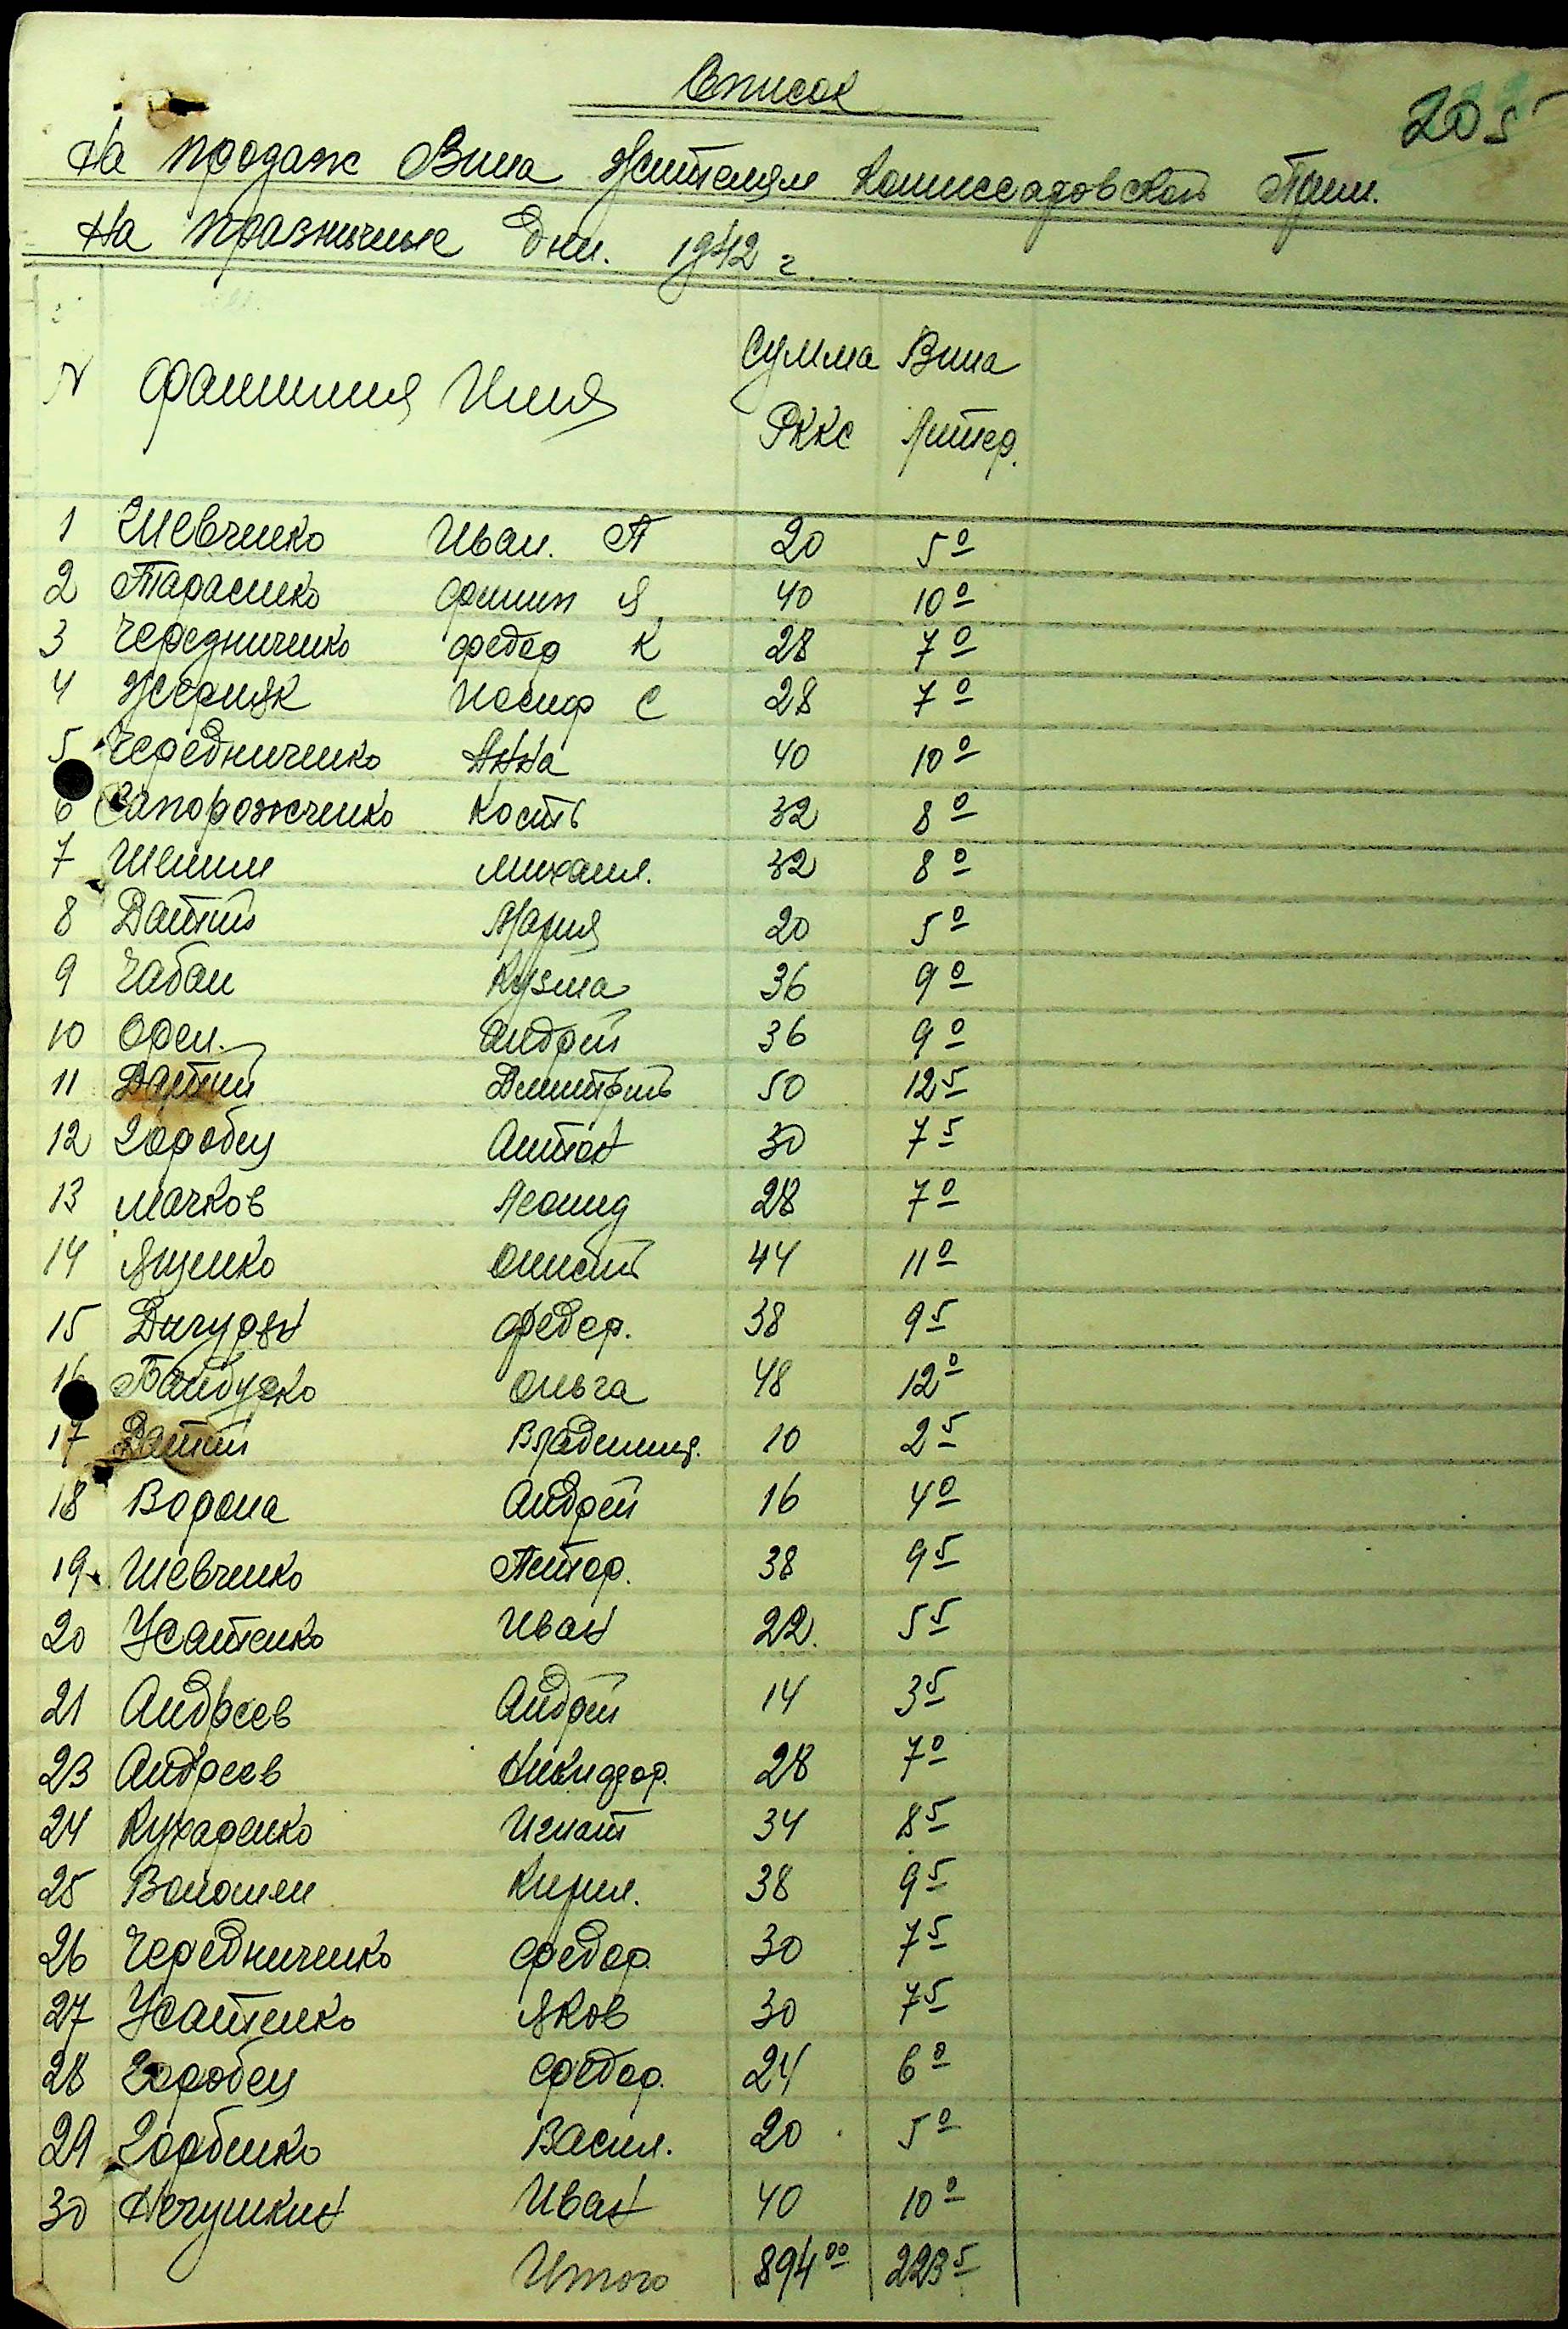 Список
205
На продаж Вина жителям Комиссаровской Прим.
На празничные Дни. 1942 г.
N Фамилия Имя Сумма РККС Вина Литер.
1 Шевченко Иван. П 20 5 0
2 Тарасенко Филип Я 40 10 0
3 Чередниченко Федор К 28 7 0
4 Жерняк Иосиф С 28 7 0
5 Чередниченко Анна 40 10 0
6 Запорожченко Кость 32 8 0
7 Михаил. 32 8 0
8 Датий Мария 20 5 0
9 Чабан Кузма 36 9 0
10 Орел. Андрей 36 9 0
11 Датий Дмитрий 50 12 5
12 Горобец Антон 30 7 5
13 Мачков Леонид 28 7 0
14 Ященко 44 11 0
15 Федор. 38 9 5
16 Байбузко Ольга 48 12 0
17 Датий Владимир. 10 2 5
18 Ворона Андрей 16 4 0
19 Шевченко Петор. 38 9 5
20 Усатенко Иван 22. 5 5
21 Андреев Андрей 14 3 5
23 Андреев Никидфор. 28 7 0
24 Кухаренко Игнат 34 8 5
25 Кирил. 38 9 5
26 Чередниченко Федор. 30 7 5
27 Усатенко Яков 30 7 5
28 Горобец Федор. 24 6 0
29 Горбенко Васил. 20 5 0
30 Нечушкин Иван 40 10 0
Итого 894 00 223 5